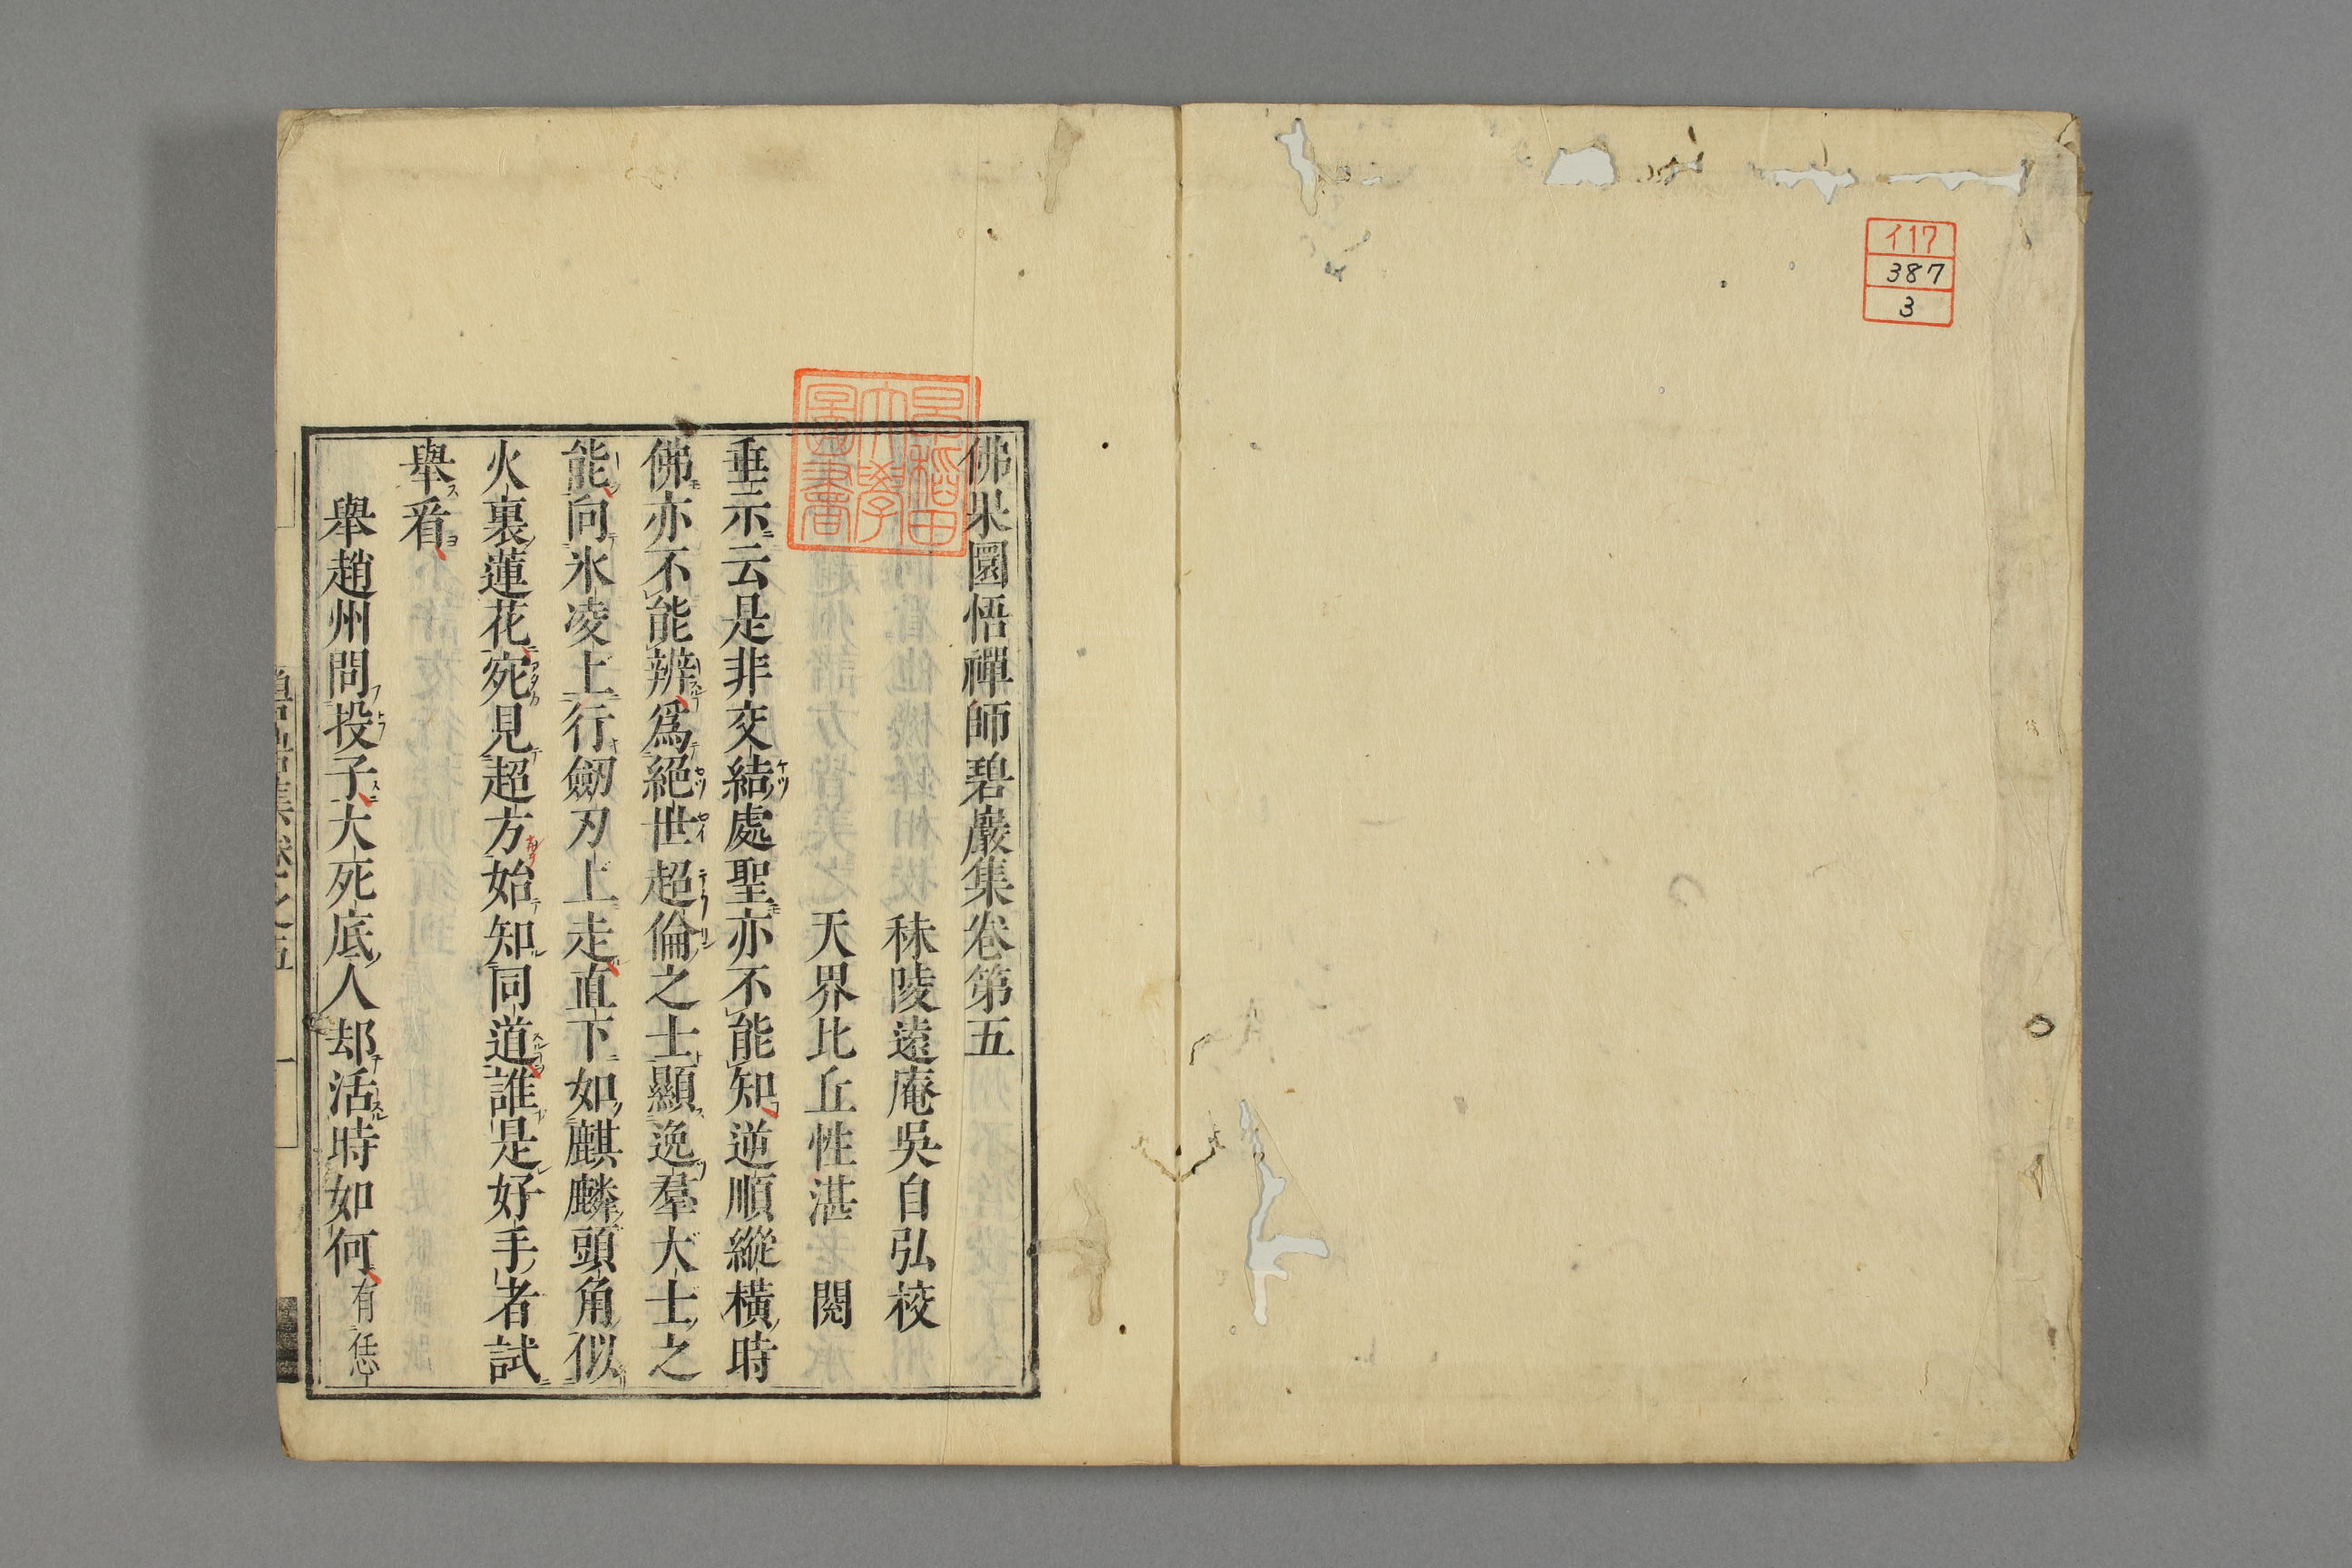 イ17
387
3
佛果圜悟禪師碧巖集卷第五
秣陵遠庵吳自弘校
天界比丘性湛 閱
垂示云是非交結處聖亦不能知逆順縱橫時
佛亦不能辨爲絕世超倫之士顯逸羣大士之
能向氷凌上行劒刃上走直下如麒麟頭角似
火裏蓮花宛見超方始知同道誰是好手者試
舉看
舉趙州問投子大死底人却活時如何有恁
早稻田
大學
圖書